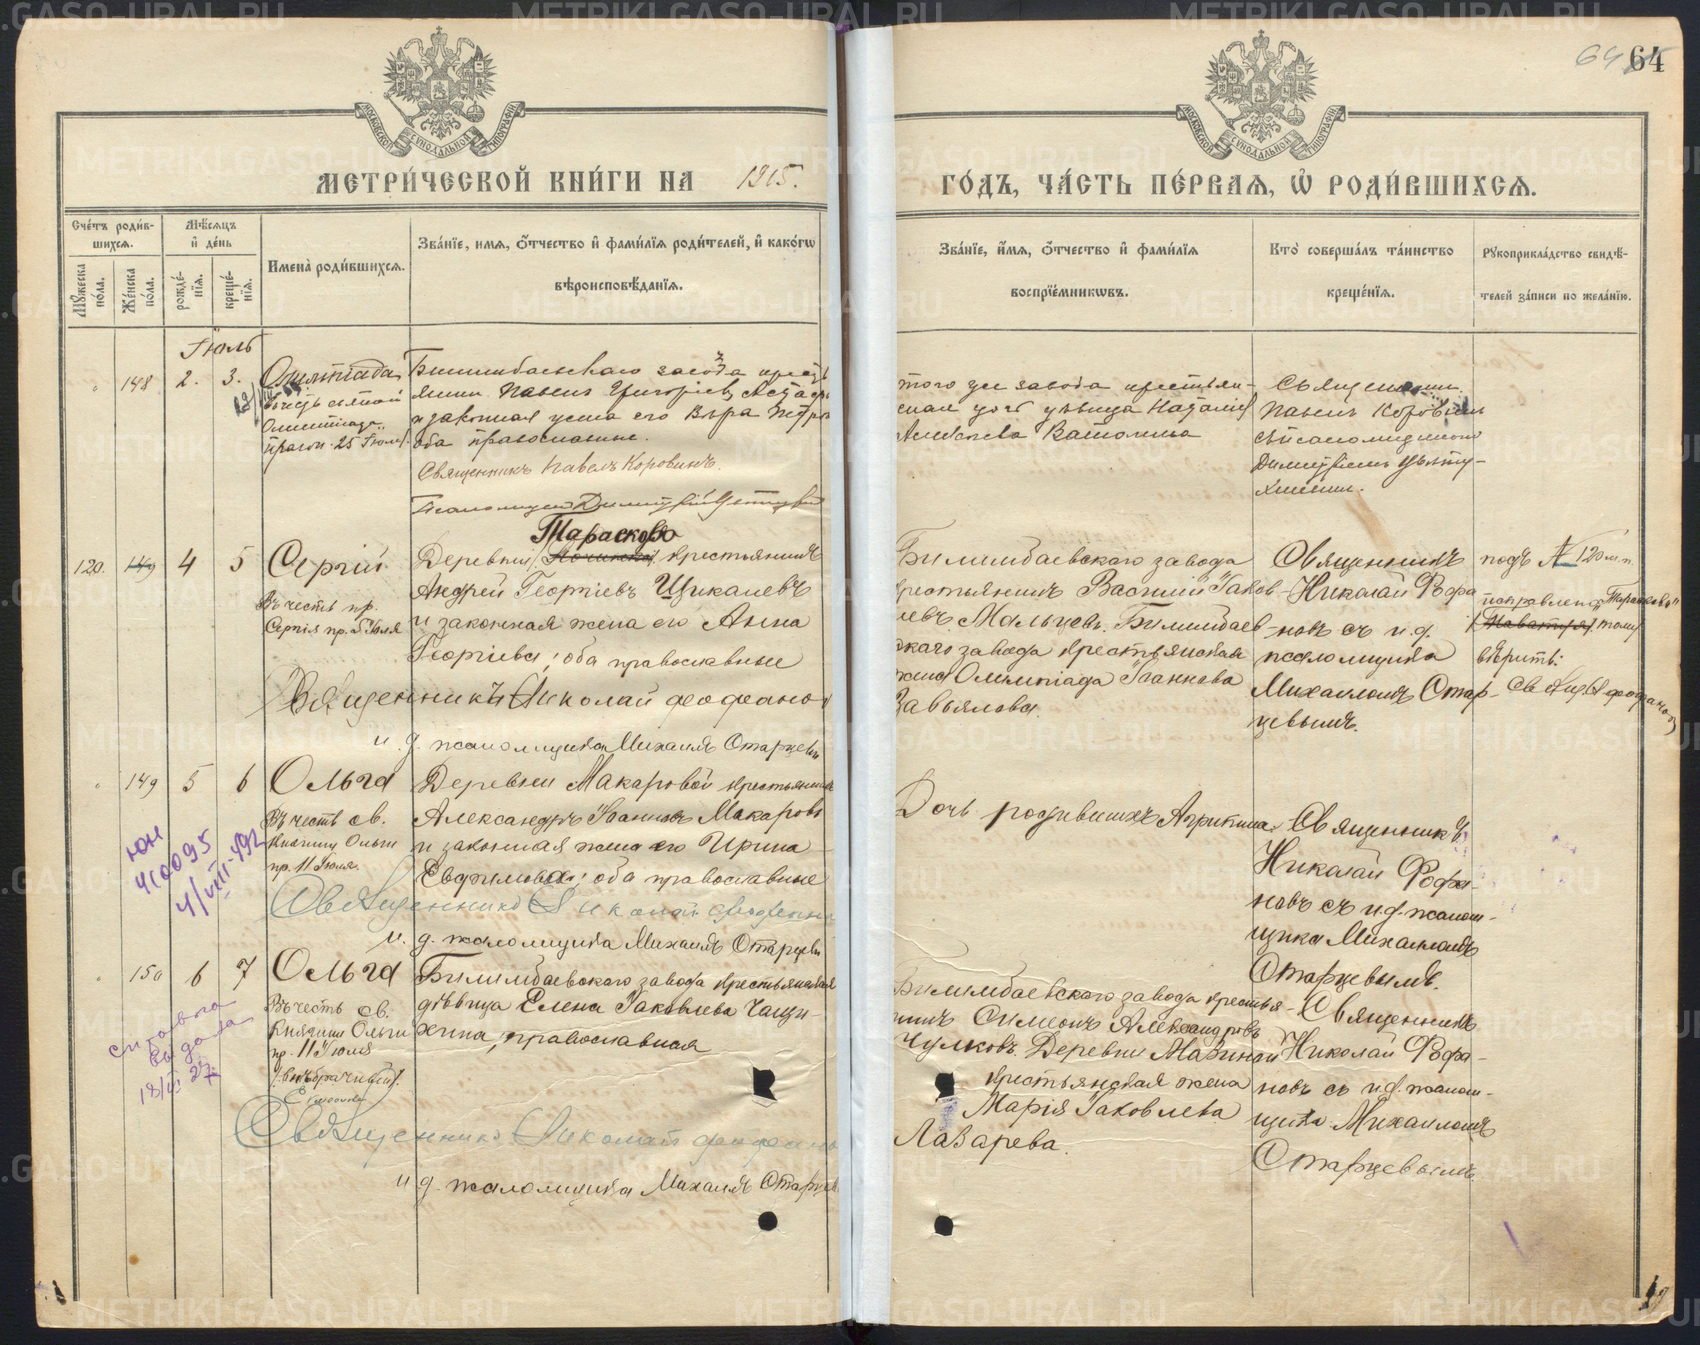 64
МЕТРИ́ЧЕСКОЙ КНИ́ГИ НА 1915.
ГО́ДЪ, ЧА́СТЬ ПЕ́РВАЯ, Ѡ҆ РОДИ́ВШИХСЯ.
Сче́тъ роди́в-
шихся.
Мꙋ́жеска по́ла.
Же́нска по́ла.
Мѣ́сяцъ и҆ де́нь
рожде́-
нїя.
креще́-
нїя.
Имена̀ роди́вшихся.
Зва́нїе, имя, ѻ҆́тчество и҆ фами́лїя роди́телей, и҆ како́гѡ
вѣроисповѣ́данїя.
Зва́нїе, и҆́мя, ѻ҆́тчество и҆ фами́лїя
воспрїе́мникѡвъ.
Кто̀ соверша́лъ та́инство
креще́нїя.
Рꙋкоприкла́дство свидѣ́-
телей за́писи по жела́нїю.
Іюль
148 2. 3. Олимпіада
въ честь святой
Олимпіады
празн. 25 Іюля
Билимбаевскаго завода
Павелъ Григоріевъ
и законная жена его Вѣра
оба православные.
Священникъ Павелъ Коровинъ.
Псаломщикъ Димитрій
того же завода крестьян-
ская дочь дѣвица Наталія
Священник
Павелъ Коровинъ
съ псаломщикомъ
Димитріемъ
120. 149 4 5 Сергій
Въ честь пр.
Сергія пр. 5 Іюля
Тарасково
Деревни крестьянинъ
Андрей Георгіевъ Щикалевъ
и законная жена его Анна
Георгіева; оба православные
Священникъ Николай Феофанов
и. д. псаломщика Михаилъ Старцевъ
Билимбаевскаго завода
крестьянинъ Василій Іаков-
левъ Мальцевъ. Билимбаев-
скаго завода крестьянская
жена Олимпіада Іаннова
Завьялова.
Священникъ
Николай Фофа-
новъ съ и.д.
псаломщика
Михаиломъ Стар-
цевымъ.
подъ № 120 м.п.
исправлен. „Тарасково“
тому
вѣрить:
149 5 6 Ольга
Въ честь св.
Княгини Ольги
пр. 11 Іюля.
Деревни Макаровой крестьянинъ
Александръ Іоанновъ Макаровъ
и законная жена его Ирина
Евфимова; оба православные
Священникъ Николай Феофанов
и. д. псаломщика Михаилъ Старцевъ
Дочь родившихъ Агрипина.
Священникъ
Николай Фофа-
новъ съ и.д. псалом-
щика Михаиломъ
Старцевымъ.
ЮН
410095
4/VIII-492
150 6 7 Ольга
Въ честь св.
Княгини Ольги
пр. 11 Іюля
(внѣбрачный).
Билимбаевскаго завода крестьянская
дѣвица Елена Іаковлева Чащи-
хина, православная
Священникъ Николай Феофанов
и. д. псаломщика Михаилъ Старцев
Билимбаевскаго завода крестья-
нинъ Симеонъ Александровъ
Чулковъ. Деревни Мазиной
крестьянская жена
Марія Іаковлева
Лазарева.
Священникъ
Николай Фофа-
новъ съ и.д. псалом-
щика Михаиломъ
Старцевымъ
справка
выдана
METRIKI.GASO-URAL.RU